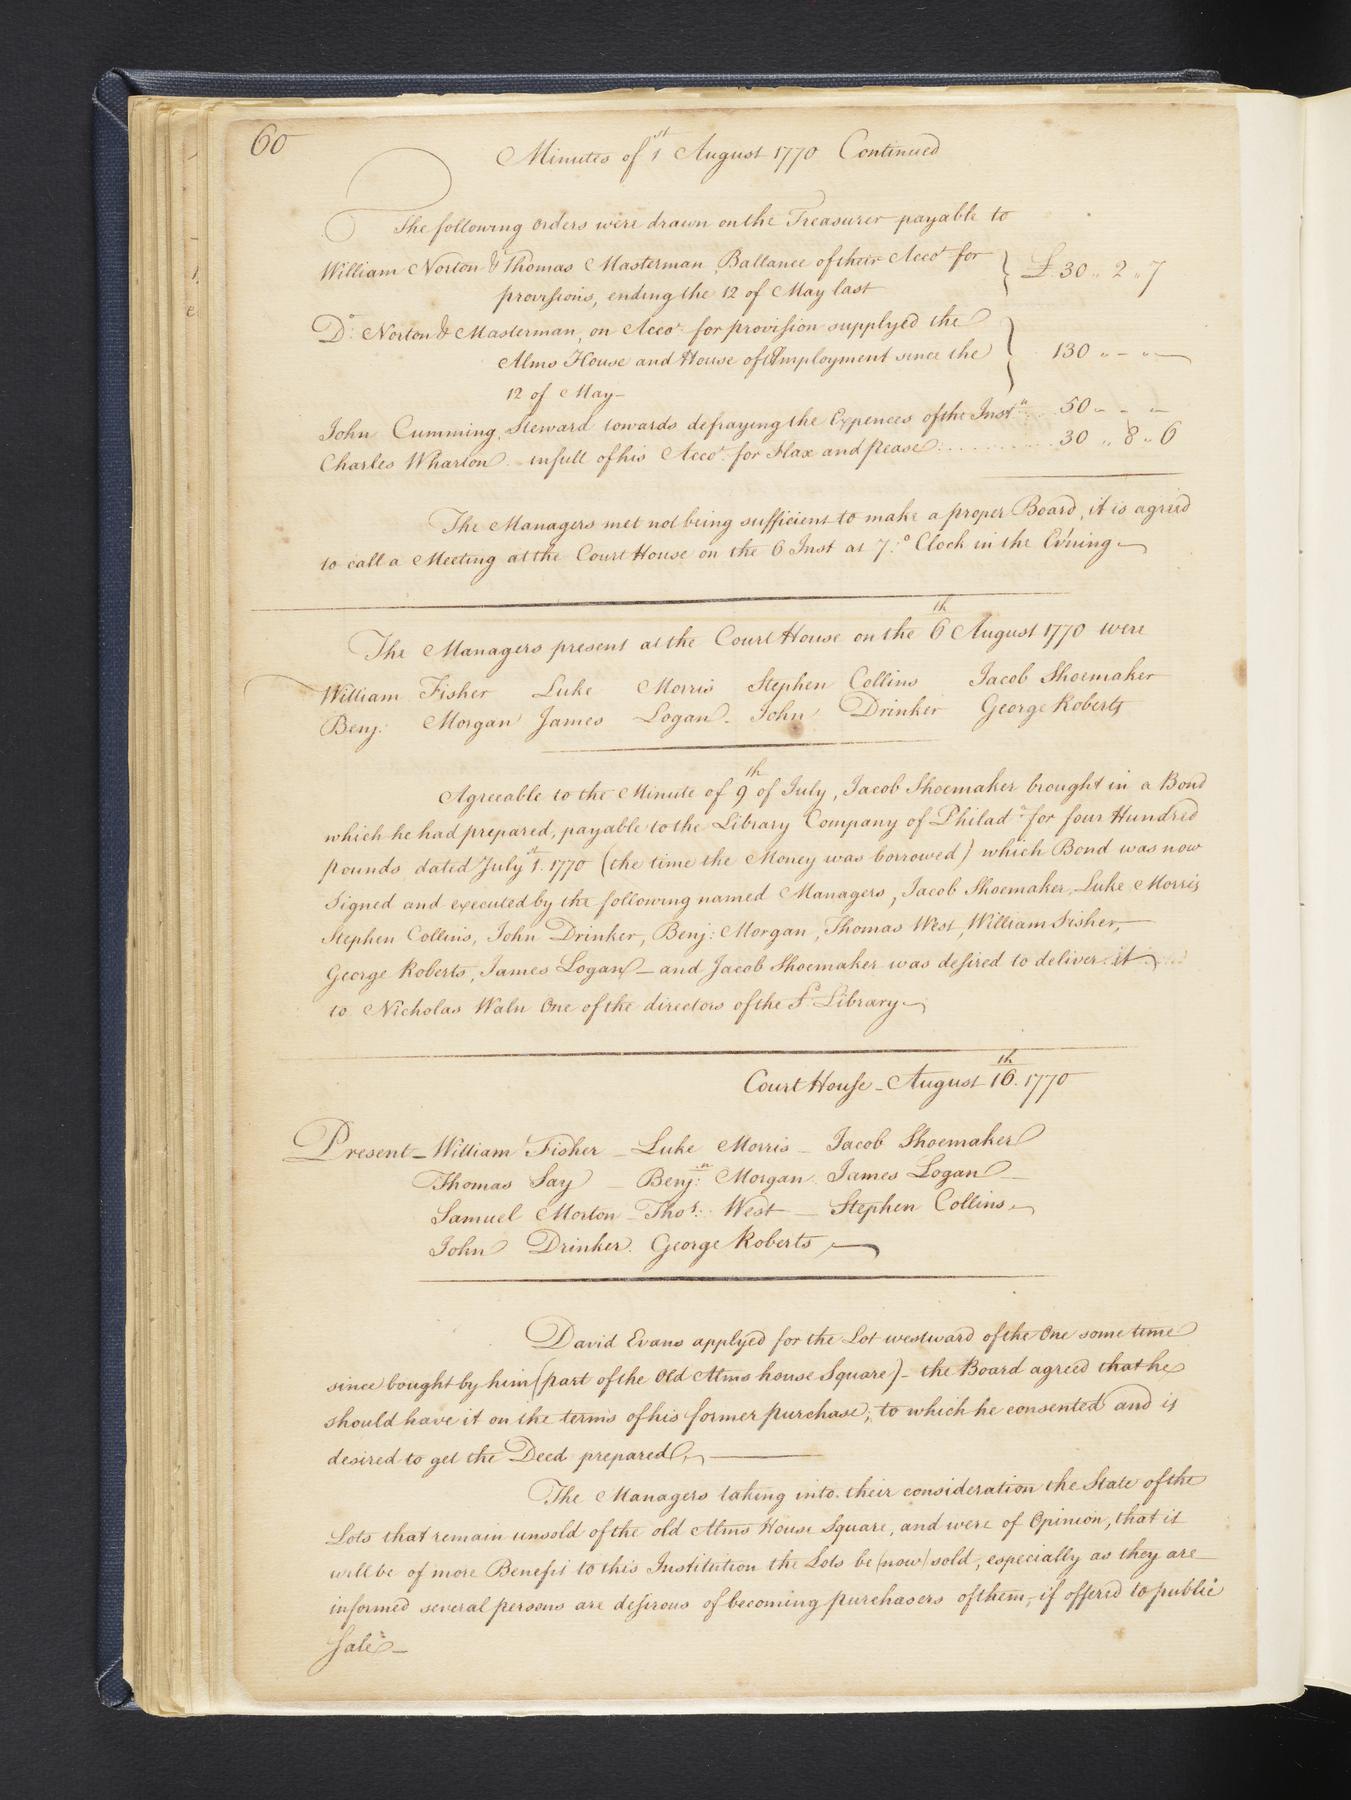 60
Minutes of 1st August 1770 Continued
The following Orders were drawn on the Treasurer payable to
William Norton & Thomas Masterman, Ballance of their Acco.t for
provisions, ending the 12 of May last } £.30 „ 2 „ 7
Do. Norton & Masterman, on Acco.t for provision supplyed the
Alms House and House of Employment since the } 130 „ - „ -
12 of May -
John Cumming, Steward towards defraying the Expences of the Inst.n .... 50 „ - „ -
Charles Wharton in full of his Acco.t for Flax and pease ............ 30 „ 8 „ 6
The Managers met not being sufficient to make a proper Board, it is agreed
to call a Meeting at the Court House on the 6 Inst at 7 o Clock in the Ev'ning
The Managers present at the Court House on the 6th August 1770 were
William Fisher Luke Morris Stephen Collins Jacob Shoemaker
Benj: Morgan James Logan - John Drinker George Roberts
Agreeable to the Minute of 9th of July, Jacob Shoemaker brought in a Bond
which he had prepared, payable to the Library Company of Philad.a for four Hundred
pounds dated July 1st. 1770 (the time the Money was borrowed) which Bond was now
Signed and executed by the following named Managers, Jacob Shoemaker, Luke Morris
Stephen Collins, John Drinker, Benj: Morgan, Thomas West, William Fisher,
George Roberts, James Logan - and Jacob Shoemaker was desired to deliver it
to Nicholas Waln One of the directors of the s.d Library
Court House - August 16th. 1770
Present - William Fisher - Luke Morris - Jacob Shoemaker
Thomas Say - Benj:n Morgan James Logan -
Samuel Morton - Thos: West - Stephen Collins
John Drinker. George Roberts
David Evans applyed for the Lot westward of the One some time
since bought by him (part of the Old Alms house Square) - the Board agreed that he
should have it on the terms of his former purchase; to which he consented and is
desired to get the Deed prepared
The Managers taking into their consideration the State of the
Lots that remain unsold of the old Alms House Square, and were of Opinion, that it
will be of more Benefit to this Institution the Lots be (now) sold, especially as they are
informed several persons are desirous of becoming purchasers of them, if offered to public
Sale -